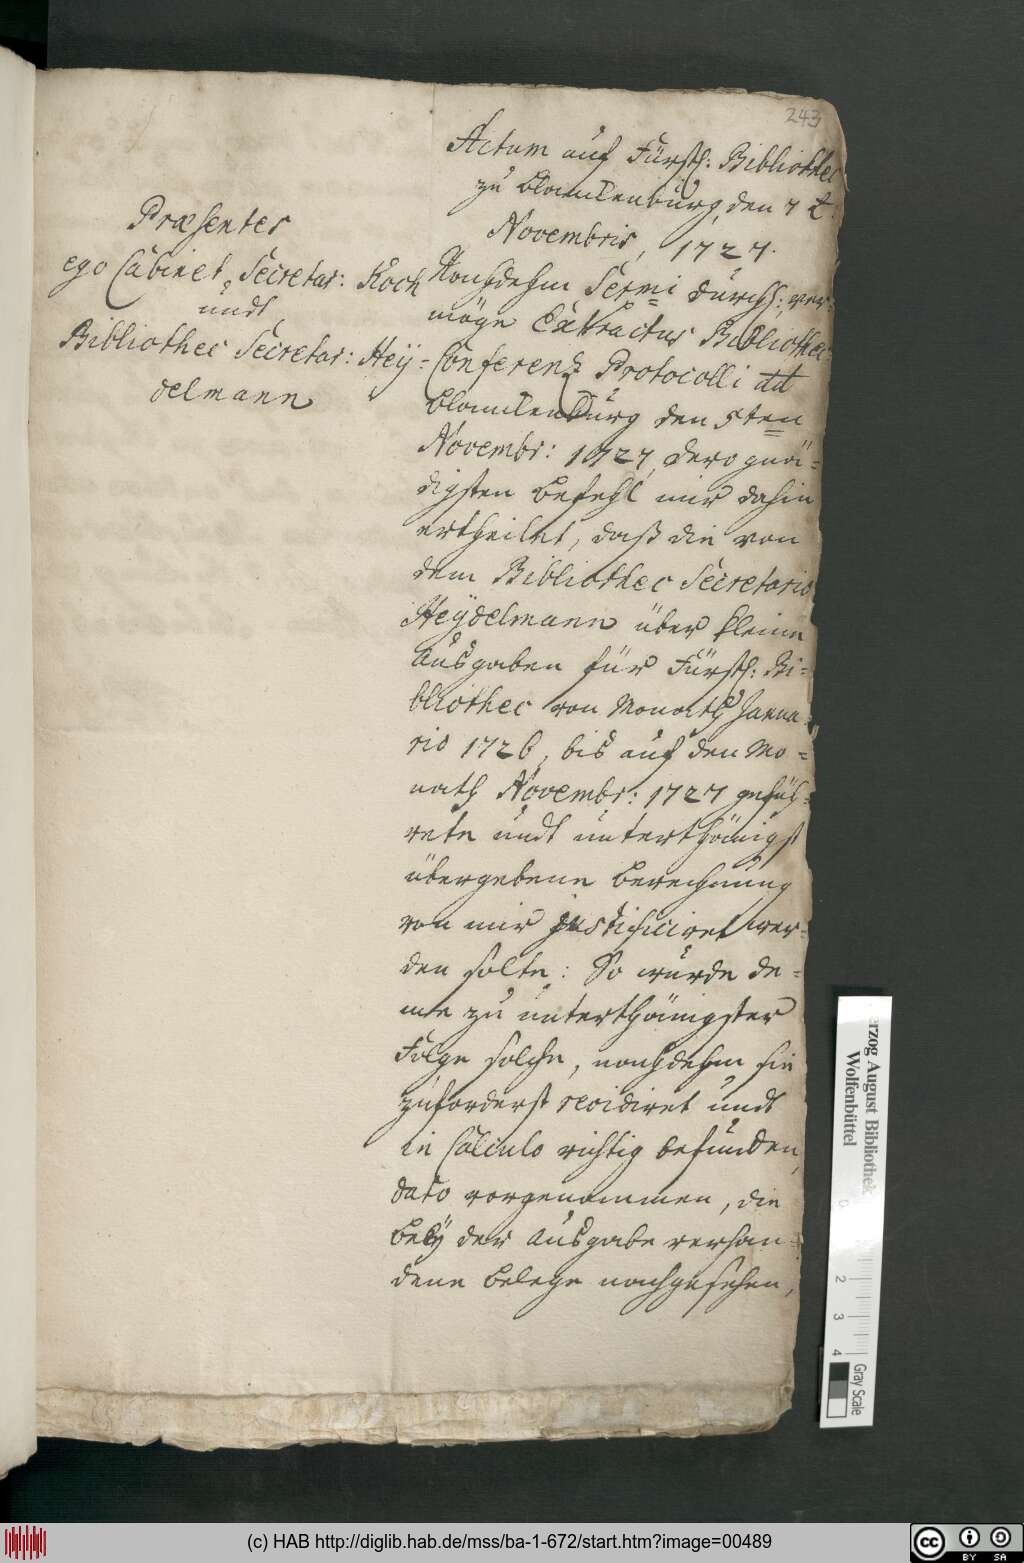 243
Actum auf Fürstl: Bibliothec
zu Blanckenburg, den 7 t.
Novembris, 1727.
Præsentes
ego Cabinet, Secretar: Koch
undt
Bibliothec Secretar: Heÿ-
delmann
Nachdehm Sermi durchl: ver-
möge Extractus Bibliothec-
Conferentz Protocolli dd
Blanckenburg den 5ten
Novembr: 1727, dero gnä-
digsten Befehl mir dahin
ertheilet, daß die von
dem Bibliothec Secretario
Heÿdelmann über kleine
Ausgaben für Fürstl: Bi-
bliothec von Monath Janua-
rio 1726, bis auf den Mo-
nath Novembr: 1727 gefüh-
rete undt unterthänigst
übergebene Berechnung
von mir justificiret wer-
den solte: So wurde de-
me zu unterthänigster
Folge solche, nachdehm sie
zuforderst revidiret undt
in Calculo richtig befunden,
dato vorgenommen, die
beÿ der Ausgabe verhan-
dene Belege nachgesehen,
Herzog August Bibliothek
Wolfenbüttel
0
2
3
4
Gray Scale
(c) HAB http://diglib.hab.de/mss/ba-1-672/start.htm?image=00489
cc
BY SA